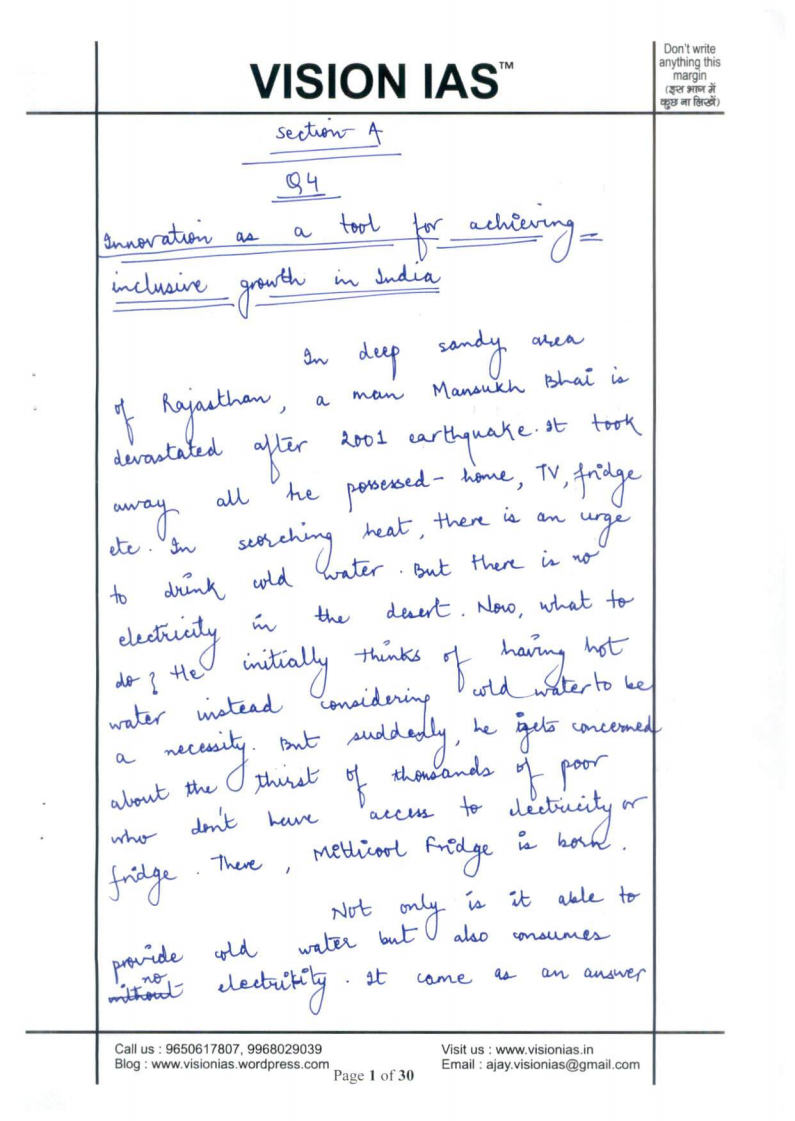 Don't write
anything this
margin
(इस भाग में
कुछ ना लिखें)
VISION IAS™
Section A
Q4
Innovation as a tool for achieving
inclusive growth in India
In deep sandy area
of Rajasthan, a man Mansukh Bhai is
devastated after 2001 earthquake. It took
away all he possessed - home, TV, fridge
etc. In scorching heat, there is an urge
to drink cold water. But there is no
electricity in the desert. Now, what to
do? He initially thinks of having hot
water instead considering cold water to be
a necessity. But suddenly, he gets concerned
about the thirst of thousands of poor
who don't have access to electricity or
fridge. There, Mitticool Fridge is born.
Not only is it able to
provide cold water but also consumes
no
without electrikity. It came as an answer
Call us : 9650617807, 9968029039
Visit us : www.visionias.in
Blog : www.visionias.wordpress.com
Email : ajay.visionias@gmail.com
Page 1 of 30